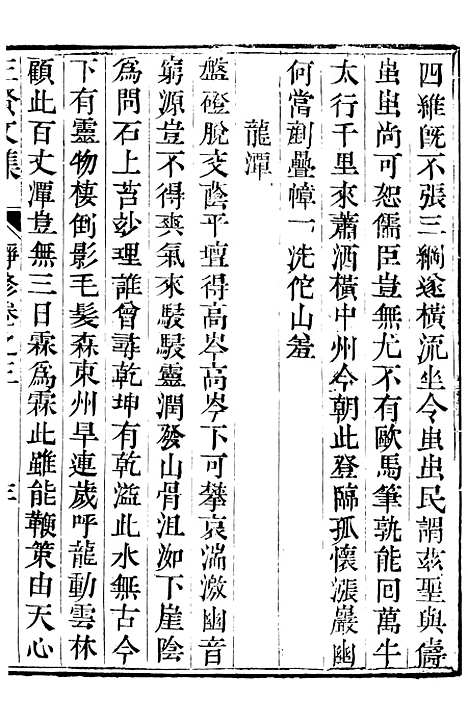 四維旣不張三綱遂橫流坐令蚩蚩民謂茲聖與儔
蚩蚩尚可恕儒臣豈無尤不有歐馬筆孰能回萬牛
太行千里來蕭洒橫中州今朝此登臨孤懷漲巖幽
何當剷疊嶂一洗佗山羞
龍潭
盤磴脫交蔭平壇得高岑高岑下可攀哀湍激幽音
窮源豈不得爽氣來駸駸靈潤發山骨沮洳下崖陰
爲問石上苔玅理誰曾尋乾坤有乾溢此水無古今
下有靈物棲倒影毛髮森東州旱連歲呼龍動雲林
顧此百丈潭豈無三日霖爲霖此雖能鞭策由天心
三賢文集
靜修卷之三
三